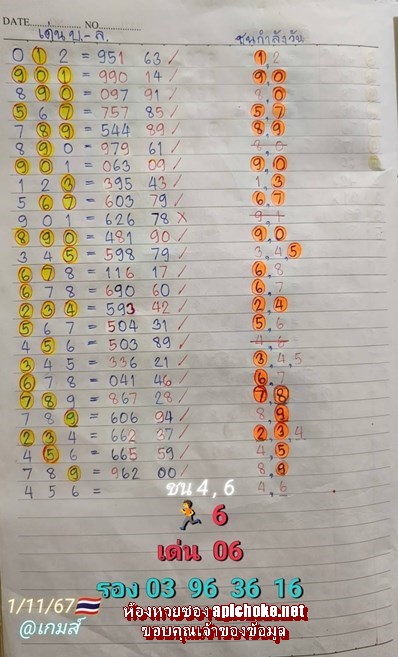 DATE NO.
เด่น บ - ล. ชนกำลังวัน
0 1 2 = 951 63 / 1, 2
9 0 1 = 990 14 / 9, 0
8 9 0 = 097 91 / 8, 0
5 6 7 = 757 85 / 5, 7
7 8 9 = 544 89 / 8, 9
8 9 0 = 979 61 / 8, 0
9 0 1 = 063 09 / 9, 0
1 2 3 = 395 43 / 1, 3
5 6 7 = 603 79 / 6, 7
9 0 1 = 626 78 x 9, 1
8 9 0 = 481 90 / 9, 0
3 4 5 = 598 79 / 3, 4, 5
6 7 8 = 116 17 / 6, 8
6 7 8 = 690 60 / 6, 7
2 3 4 = 593 42 / 2, 4
5 6 7 = 504 31 / 5, 6
4 5 6 = 503 89 / 4, 6
3 4 5 = 336 21 / 3, 4, 5
6 7 8 = 041 46 / 6, 7
7 8 9 = 867 28 / 7, 8
7 8 9 = 606 94 / 8, 9
2 3 4 = 662 37 / 2, 3, 4
4 5 6 = 665 59 / 4, 5
7 8 9 = 962 00 / 8, 9
4 5 6 = ชน 4 , 6 4, 6
6
เด่น 06
รอง 03 96 36 16
1/11/67
@เกมส์
ห้องหวยซอง apichoke.net
ขอบคุณเจ้าของข้อมูล